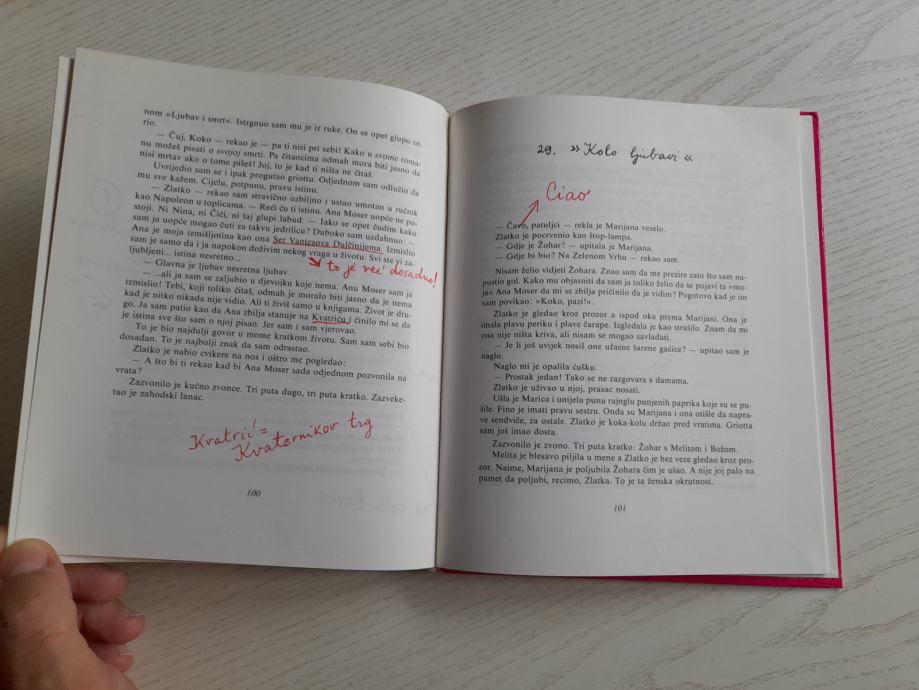 nom »Ljubav i smrt«. Istrgnuo sam mu je iz ruke. On se opet glupo ce-
rio.
— Čuj, Koko — rekao je — pa ti nisi pri sebi! Kako u svome roma-
nu možeš pisati o svojoj smrti. Pa čitaocima odmah mora biti jasno da
nisi mrtav ako o tome pišeš! Joj, to je kad ti ništa ne čitaš.
Uvrijedio sam se i ipak progutao griottu. Odjednom sam odlučio da
mu sve kažem. Cijelu, potpunu, pravu istinu.
— Zlatko — rekao sam stravično ozbiljno i ustao umotan u ručnik
kao Napoleon u toplicama. — Reći ću ti istinu. Ana Moser uopće ne po-
stoji. Ni Nina, ni Čiči, ni taj glupi labud. — Iako se opet čudim kako
sam ja uopće mogao čuti za takvu jedrilicu? Duboko sam uzdahnuo: —
Ana je moja izmišljotina kao ona Ser Vantesova Dulčinijema. Izmislio
sam je samo da i ja napokon doživim nekog vraga u životu. Svi ste vi za-
ljubljeni... istina nesretno...
to je već dosadno!
— Glavna je ljubav nesretna ljubav.
— ...ali ja sam se zaljubio u djevojku koje nema. Anu Moser sam ja
izmislio! Tebi, koji toliko čitaš, odmah je moralo biti jasno da je nema
kad je nitko nikada nije vidio. Ali ti živiš samo u knjigama. Život je dru-
go. Ja sam patio kao da Ana zbilja stanuje na Kvatriću i činilo mi se da
je istina sve što sam o njoj pisao. Jer sam i sam vjerovao.
To je bio najdulji govor u mome kratkom životu. Sam sam sebi bio
dosadan. To je najbolji znak da sam odrastao.
Zlatko je nabio cvikere na nos i oštro me pogledao:
— A što bi ti rekao kad bi Ana Moser sada odjednom pozvonila na
vrata?
Zazvonilo je kućno zvonce. Tri puta dugo, tri puta kratko. Zazveke-
tao je zahodski lanac.
Kvatrić =
Kvaternikov trg
100
29. »Kolo ljubavi«
Ciao
— Čavo, patuljci — rekla je Marijana veselo.
Zlatko je pocrvenio kao štop-lampa.
— Gdje je Žohar? — upitala je Marijana.
— Gdje bi bio? Na Zelenom Vrhu — rekao sam.
Nisam želio vidjeti Žohara. Znao sam da me prezire zato što sam na-
pustio gol. Kako mu objasniti da sam ja toliko želio da se pojavi ta »mo-
ja« Ana Moser da mi se zbilja pričinilo da je vidim? Pogotovo kad je on
sam povikao: »Koko, pazi!«.
Zlatko je gledao kroz prozor a ispod oka prema Marijani. Ona je
imala plavu periku i plave čarape. Izgledala je kao strašilo. Znam da mi
ona nije ništa kriva, ali nisam se mogao savladati.
— Je li još uvijek nosiš one užasne šarene gačice? — upitao sam je
naglo.
Naglo mi je opalila ćušku.
— Prostak jedan! Tako se ne razgovara s damama.
Zlatko je uživao u njoj, prasac nosati.
Ušla je Marica i unijela punu rajnglu punjenih paprika koje su se pu-
šile. Fino je imati pravu sestru. Onda su Marijana i ona otišle da naprav-
e sendviče, za ostale. Zlatko je koka-kolu držao pred vratima. Griotta
sam još imao dosta.
Zazvonilo je zvono. Tri puta kratko: Žohar s Melitom i Božom.
Melita je blesavo piljila u mene a Zlatko je bez veze gledao kroz pro-
zor. Naime, Marijana je poljubila Žohara čim je ušao. A nije joj palo na
pamet da poljubi, recimo, Zlatka. To je ta ženska okrutnost.
101